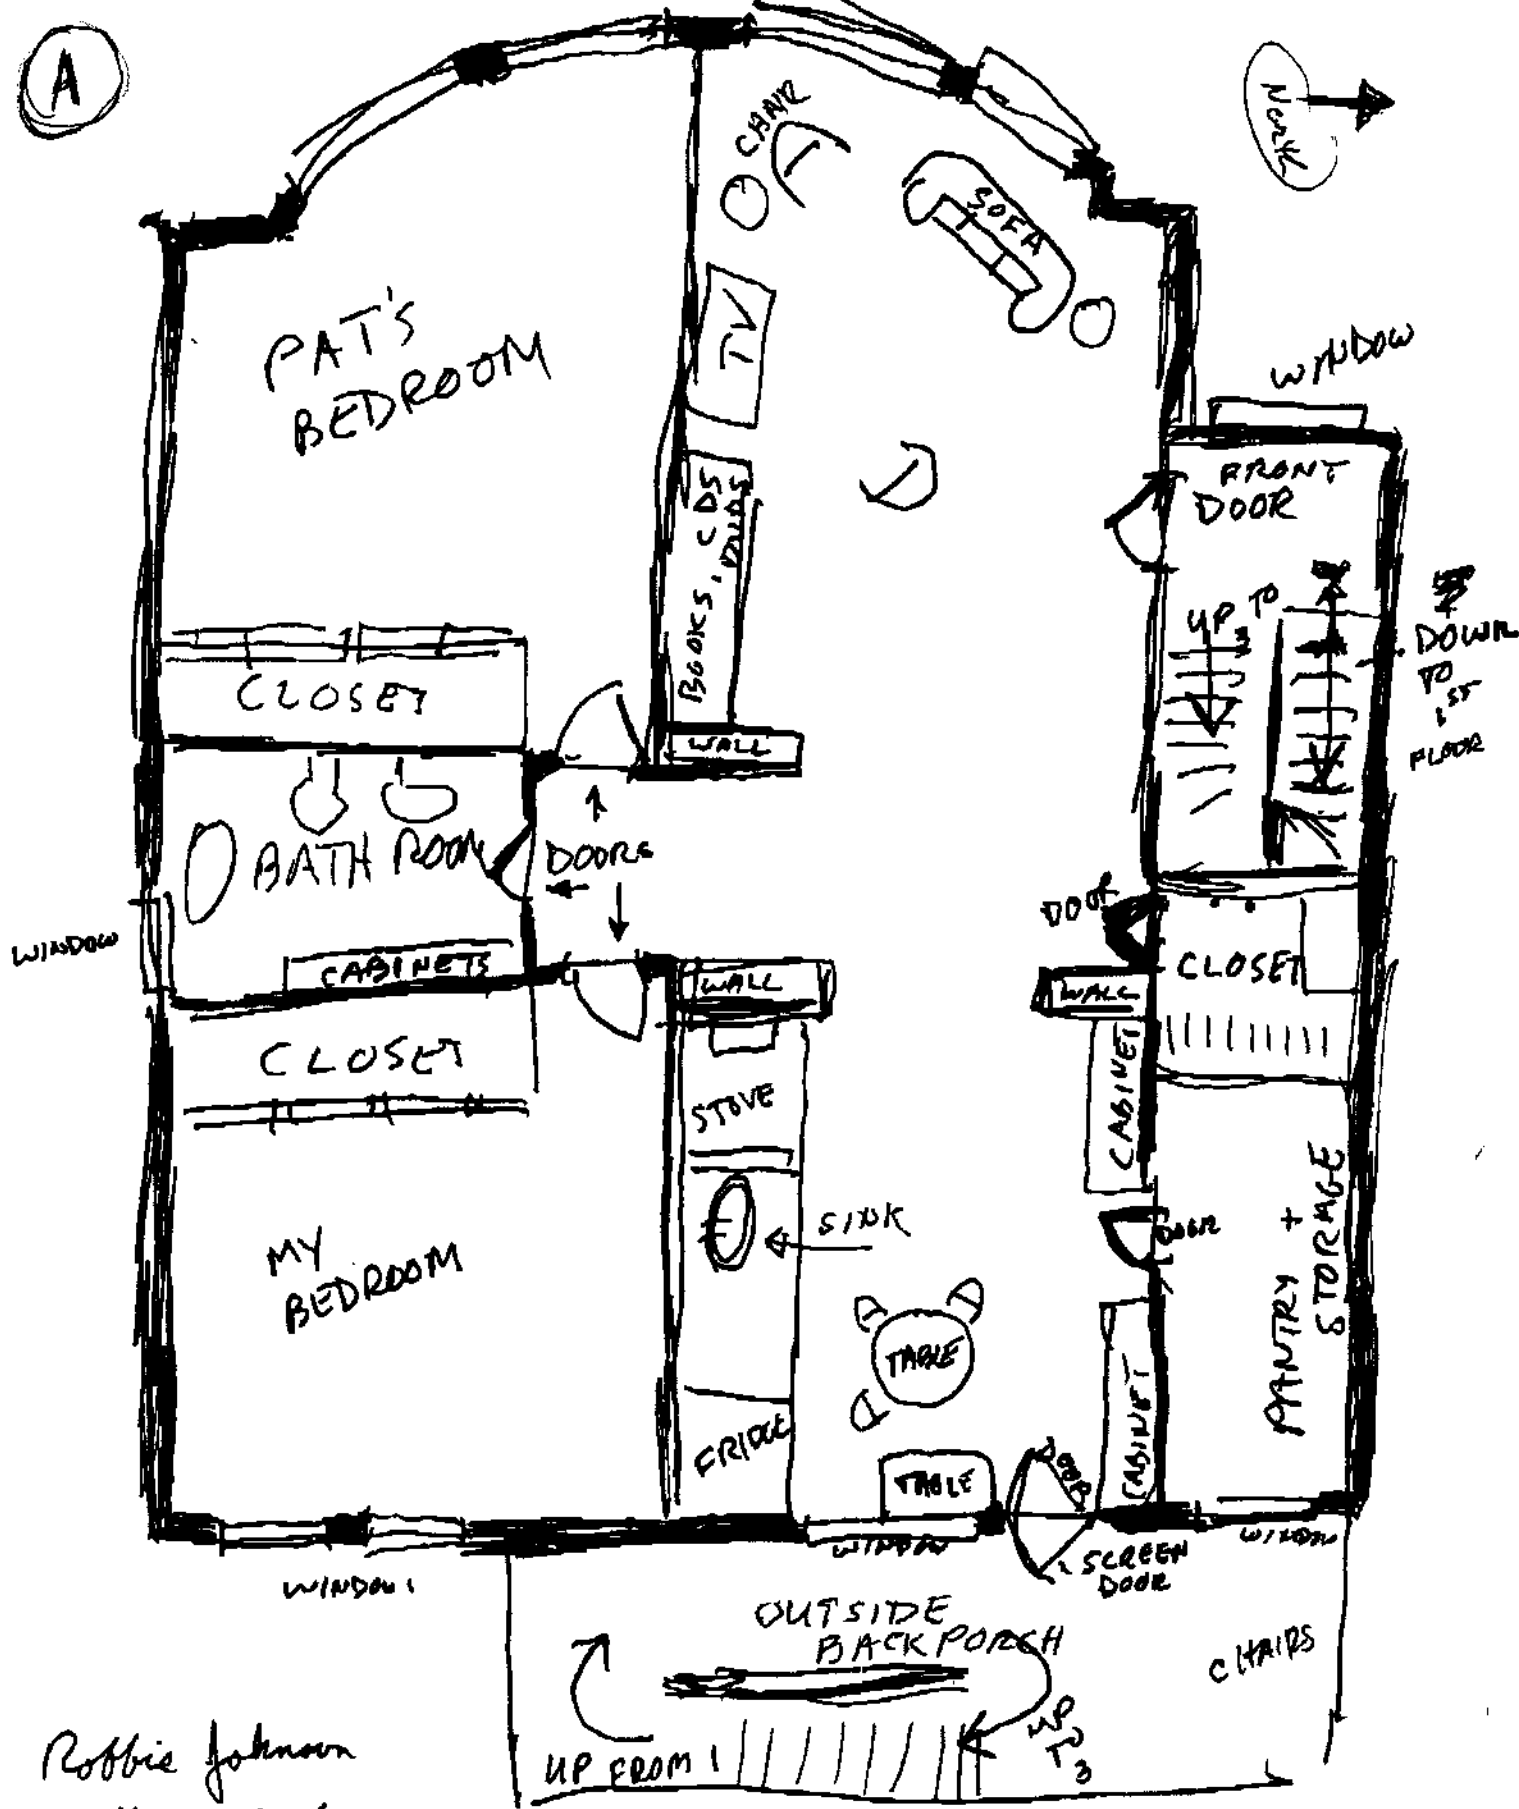 A
North
CHAIR
SOFA
TV
PAT'S
BEDROOM
WINDOW
FRONT
DOOR
BOOKS, CDS
DVDS
UP TO
3
DOWN
TO
1ST
FLOOR
CLOSET
WALL
BATH ROOM
DOORS
WINDOW
CABINETS
DOOR
CLOSET
WALL
WALL
CLOSET
STOVE
CABINET
SINK
DOOR
MY
BEDROOM
TABLE
PANTRY +
STORAGE
FRIDGE
TABLE
DOOR
CABINET
WINDOW
WINDOW
WINDOW
SCREEN
DOOR
OUTSIDE
BACK PORCH
CHAIRS
UP FROM 1
UP
TO
3
Robbie Johnson